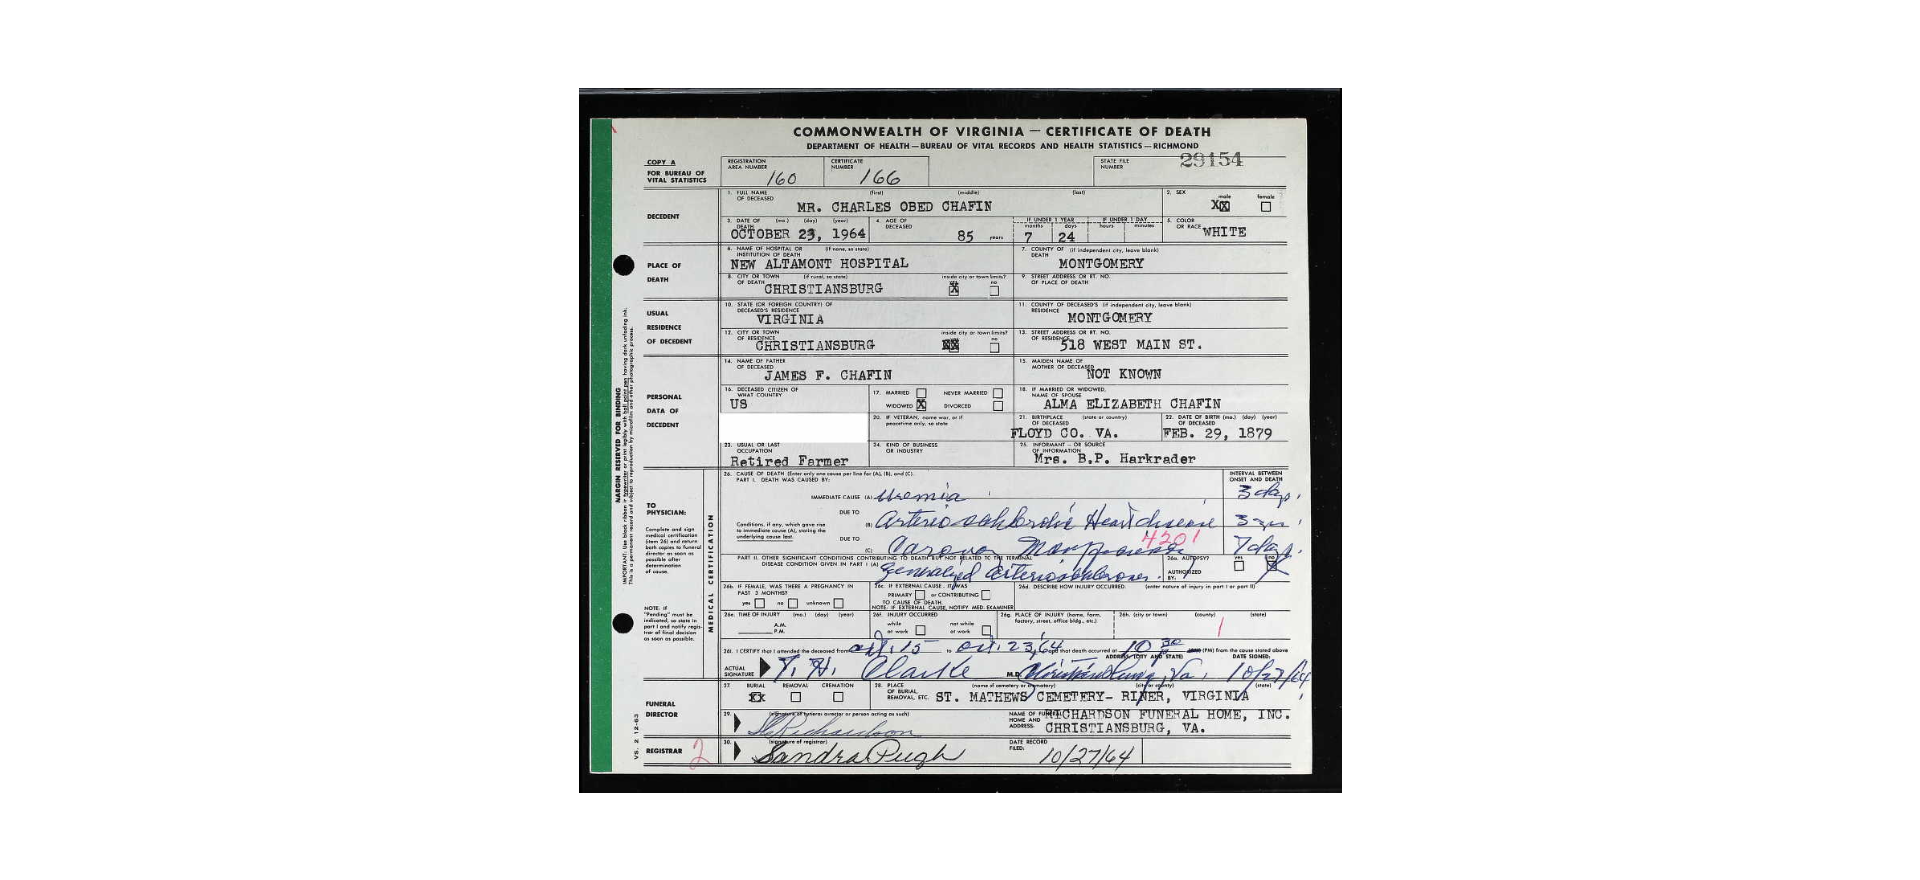 COMMONWEALTH OF VIRGINIA — CERTIFICATE OF DEATH
DEPARTMENT OF HEALTH—BUREAU OF VITAL RECORDS AND HEALTH STATISTICS—RICHMOND
COPY A
FOR BUREAU OF
VITAL STATISTICS
REGISTRATION
AREA NUMBER
160
CERTIFICATE
NUMBER
166
STATE FILE
NUMBER
29154
DECEDENT
1. FULL NAME
OF DECEASED
(first) (middle) (last)
MR. CHARLES OBED CHAFIN
2. SEX
male female
XX
3. DATE OF DEATH (mo.) (day) (year)
OCTOBER 23, 1964
4. AGE OF
DECEASED
85 years
IF UNDER 1 YEAR IF UNDER 1 DAY
months days hours minutes
7 24
5. COLOR
OR RACE
WHITE
PLACE OF
DEATH
6. NAME OF HOSPITAL OR (if none, so state)
INSTITUTION OF DEATH
NEW ALTAMONT HOSPITAL
7. COUNTY OF (if independent city, leave blank)
DEATH
MONTGOMERY
8. CITY OR TOWN (if rural, so state)
OF DEATH
CHRISTIANSBURG
inside city or town limits?
X no
9. STREET ADDRESS OR RT. NO.
OF PLACE OF DEATH
USUAL
RESIDENCE
OF DECEDENT
10. STATE (OR FOREIGN COUNTRY) OF
DECEASED'S RESIDENCE
VIRGINIA
11. COUNTY OF DECEASED'S (if independent city, leave blank)
RESIDENCE
MONTGOMERY
12. CITY OR TOWN
OF RESIDENCE
CHRISTIANSBURG
inside city or town limits?
XX no
13. STREET ADDRESS OR RT. NO.
OF RESIDENCE
518 WEST MAIN ST.
PERSONAL
DATA OF
DECEDENT
14. NAME OF FATHER
OF DECEASED
JAMES F. CHAFIN
15. MAIDEN NAME OF
MOTHER OF DECEASED
NOT KNOWN
16. DECEASED CITIZEN OF
WHAT COUNTRY
US
17. MARRIED NEVER MARRIED
WIDOWED X DIVORCED
18. IF MARRIED OR WIDOWED,
NAME OF SPOUSE
ALMA ELIZABETH CHAFIN
20. IF VETERAN, name war, or if
peacetime only, so state
21. BIRTHPLACE (state or country)
OF DECEASED
FLOYD CO. VA.
22. DATE OF BIRTH (mo.) (day) (year)
OF DECEASED
FEB. 29, 1879
23. USUAL OR LAST
OCCUPATION
Retired Farmer
24. KIND OF BUSINESS
OR INDUSTRY
25. INFORMANT — OR SOURCE
OF INFORMATION
Mrs. B.P. Harkrader
MARGIN RESERVED FOR BINDING
TO
PHYSICIAN:
Complete and sign
medical certification
(item 26) and return
both copies to funeral
director as soon as
possible after
determination
of cause.
NOTE. IF
"Pending" must be
indicated, so state in
part I and notify regis-
trar of final decision
as soon as possible.
MEDICAL CERTIFICATION
26. CAUSE OF DEATH (Enter only one cause per line for (A), (B), and (C).
PART I. DEATH WAS CAUSED BY:
INTERVAL BETWEEN
ONSET AND DEATH
IMMEDIATE CAUSE (A) Uremia 3 days
DUE TO
Conditions, if any, which gave rise
to immediate cause (A), stating the
underlying cause last.
(B) Heart disease 3 yrs
4201
DUE TO
(C) 7 days
PART II. OTHER SIGNIFICANT CONDITIONS CONTRIBUTING TO DEATH BUT NOT RELATED TO THE TERMINAL
DISEASE CONDITION GIVEN IN PART I (A)
Generalized Arteriosclerosis
26a. AUTOPSY?
yes no
AUTHORIZED
BY:
26b. IF FEMALE, WAS THERE A PREGNANCY IN
PAST 3 MONTHS?
yes no unknown
26c. IF EXTERNAL CAUSE, IT WAS
PRIMARY or CONTRIBUTING
TO CAUSE OF DEATH
NOTE. IF EXTERNAL CAUSE, NOTIFY MED. EXAMINER
26d. DESCRIBE HOW INJURY OCCURRED. (enter nature of injury in part I or part II)
26e. TIME OF INJURY (mo.) (day) (year)
A.M.
P.M.
26f. INJURY OCCURRED
while not while
at work at work
26g. PLACE OF INJURY (home, farm,
factory, street, office bldg., etc.)
26h. (city or town) (county) (state)
26i. I CERTIFY that I attended the deceased from Oct. 15 to Oct. 23, 64 and that death occurred at 10 30 (PM) from the cause stated above
ADDRESS: (CITY AND STATE) DATE SIGNED:
ACTUAL
SIGNATURE
H. Clarke M.D. Christiansburg, Va. 10/27/64
FUNERAL
DIRECTOR
27. BURIAL REMOVAL CREMATION
XX
28. PLACE
OF BURIAL,
REMOVAL, ETC.
(name of cemetery or crematory) (city or county) (state)
ST. MATHEWS CEMETERY- RINER, VIRGINIA
29. (signature of funeral director or person acting as such)
Richardson
NAME OF FUNERAL
HOME AND
ADDRESS
RICHARDSON FUNERAL HOME, INC.
CHRISTIANSBURG, VA.
REGISTRAR
2
30. (signature of registrar)
Sandra Pugh
DATE RECORD
FILED:
10/27/64
VS. 2 12-63